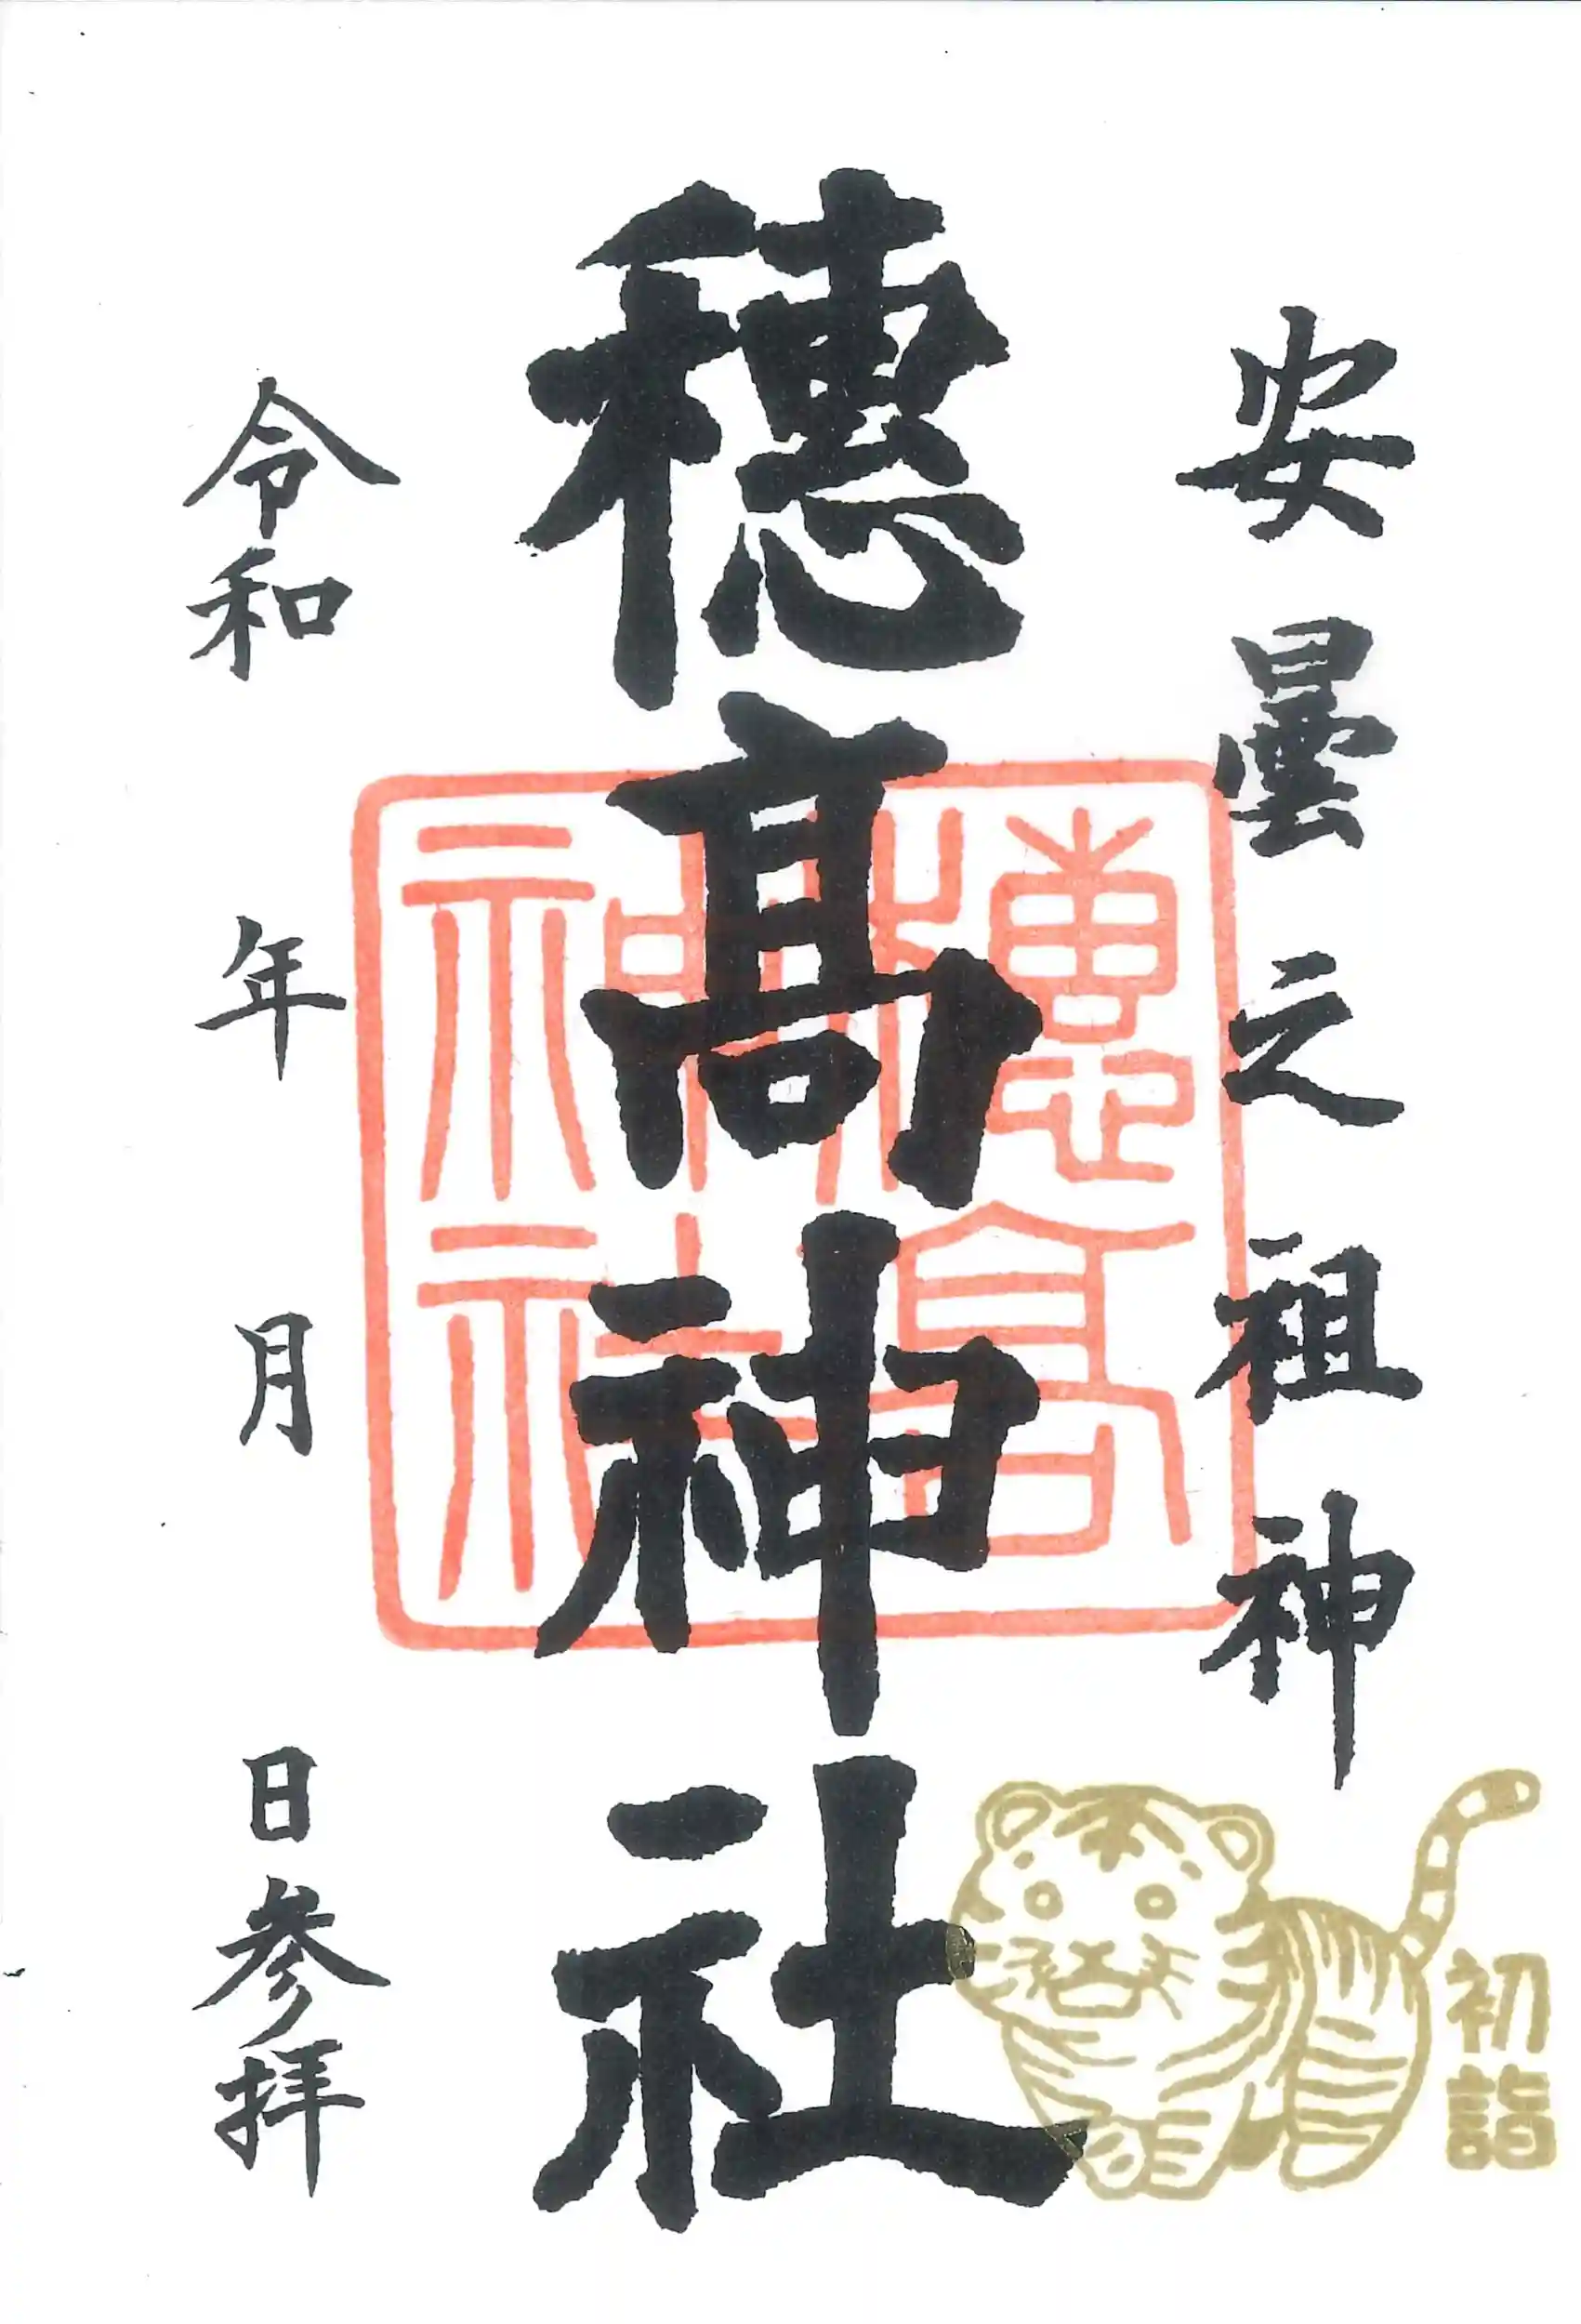 安曇之祖神
穂髙神社
穂高神社
令和 年 月 日参拝
初詣